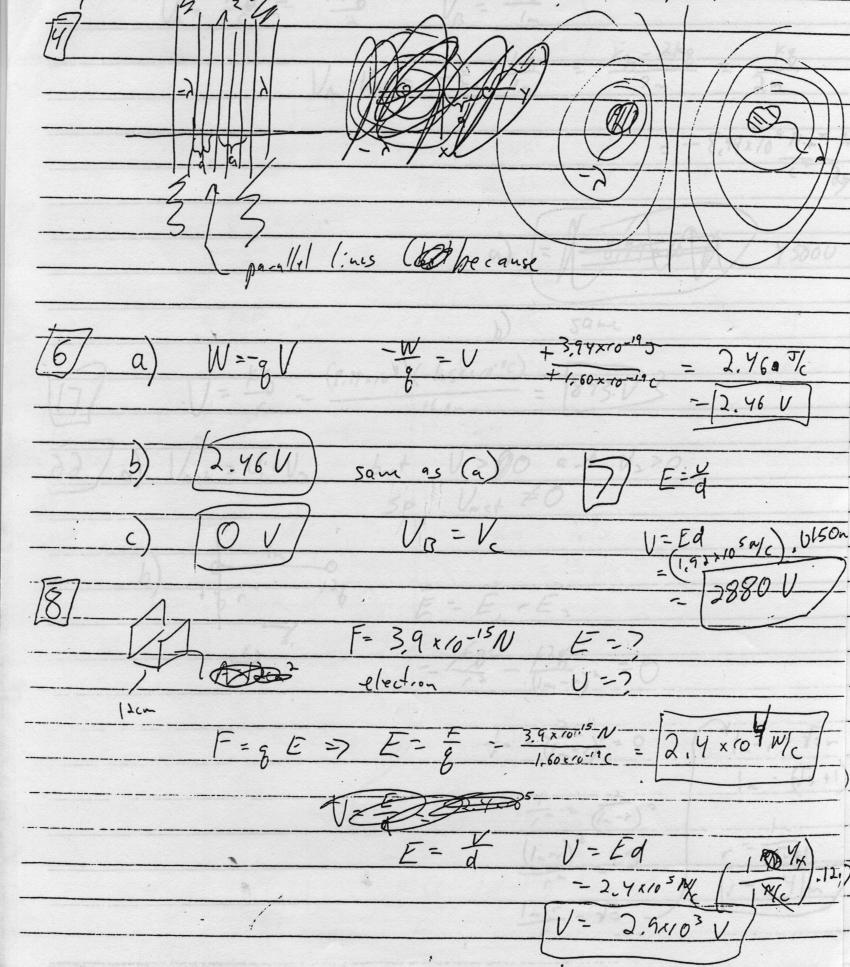 4
-λ λ
a a
- λ x y
-λ λ
parallel lines because
6 a) W=-qV -W/q = V +3.94x10^-19 J / +1.60x10^-19 C = 2.46 J/C
=-2.46 V
b) 2.46 V same as (a) 7 E=V/d
c) 0 V V_B = V_C V=Ed
=(1.92x10^5 N/C).0150m
= 2880 V
8
F= 3.9x10^-15 N E=?
electron V=?
12cm
F=qE => E = F/q = 3.9x10^-15 N / 1.60x10^-19 C = 2.4x10^4 N/C
E = V/d V = Ed
= 2.4x10^5 N/C (1 V/m / 1 N/C) .12
V= 2.9x10^3 V